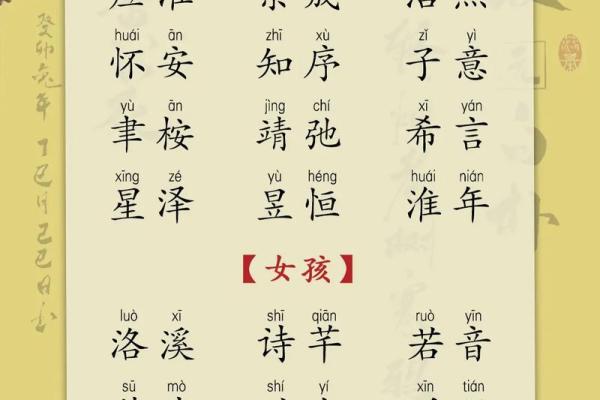 huái ān zhī xù zǐ yì
怀安 知序 子意
yù ān jìng chí xī yán
聿桉 靖弛 希言
xīng zé yù héng huái nián
星泽 昱恒 淮年
【女孩】
luò xī shī qiān ruò yīn
洛溪 诗芊 若音
sū mò shí yí xīn tián
癸卯兔年丁巳月己巳日